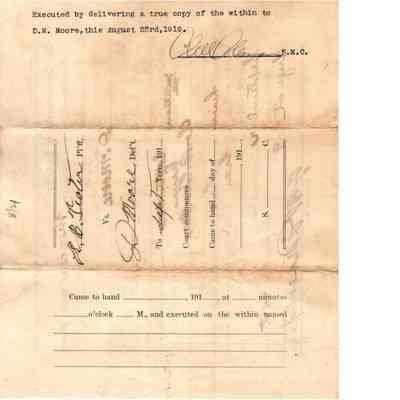 Executed by delivering a true copy of the within to
D.W. Moore, this August 23rd, 1919.
F.M.C.
Pl'ff,
Vs.
D Moore Def't.
To Sept Term, 191
Court commences
Came to hand day of
, 191
S. C.
8/21
Came to hand , 191 , at minutes
o'clock M., and executed on the within named